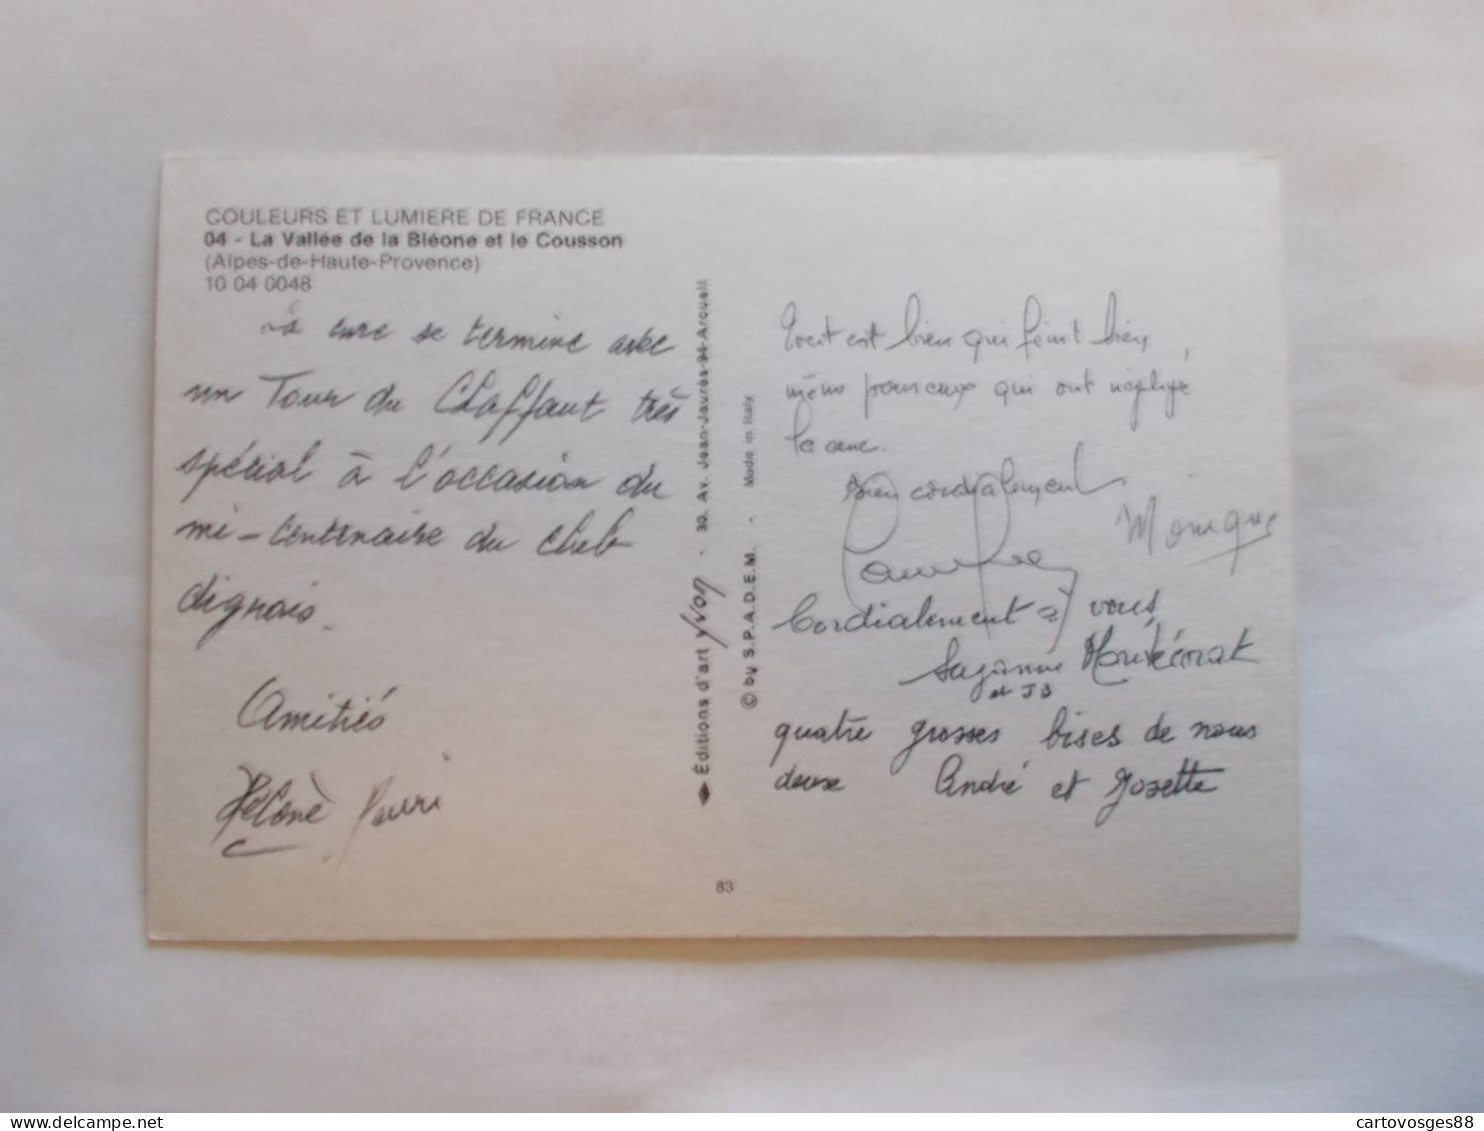 COULEURS ET LUMIERE DE FRANCE
04 - La Vallée de la Bléone et le Cousson
(Alpes-de-Haute-Provence)
10 04 0048
La cure se termine avec
un Tour du Chaffaut très
spécial à l'occasion du
mi-centenaire du club
dignois.
Amitiés
Hélène
Editions d'art Yvon - 30, Av. Jean-Jaurès-94-Arcueil
© by S.P.A.D.E.M. - Made in Italy
83
Tout est bien qui finit bien,
même pour ceux qui ont négligé
la cure.
Bien cordialement
Monique
Cordialement à vous,
Suzanne
et JB
quatre grosses bises de nous
deux André et Josette
cartovosges88